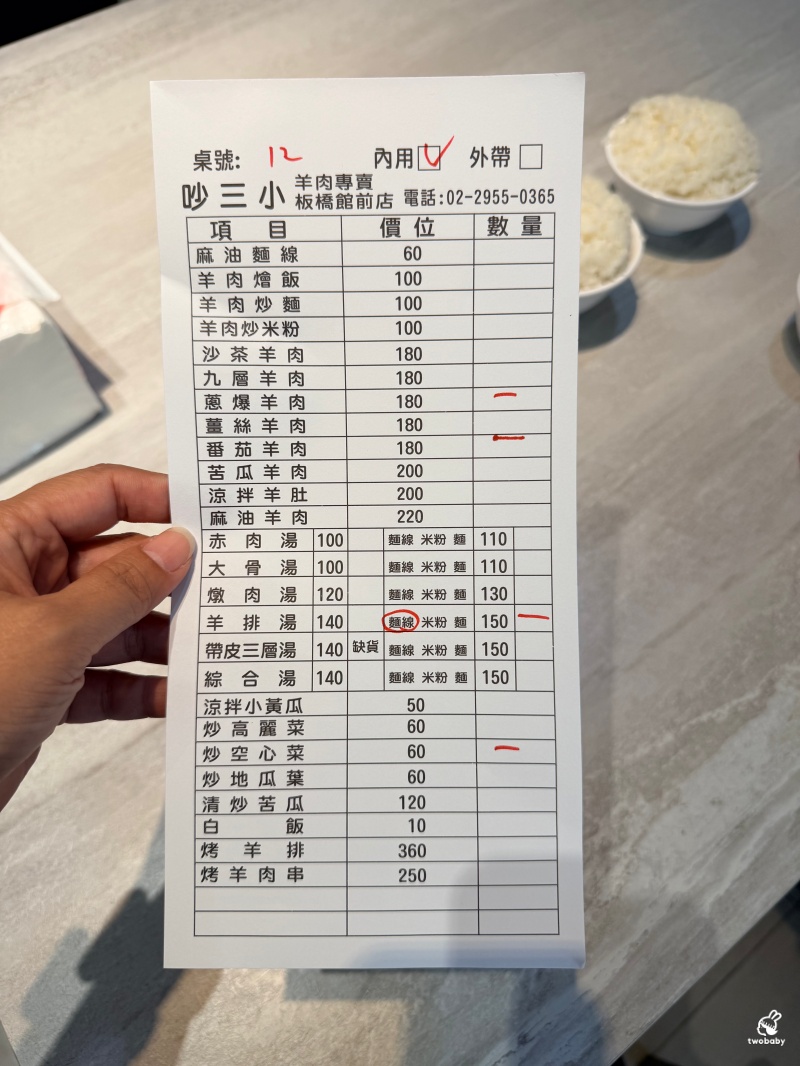 桌號: 12 內用 ✓ 外帶 □
吵三小 羊肉專賣 板橋館前店 電話:02-2955-0365
項目 價位 數量
麻油麵線 60
羊肉燴飯 100
羊肉炒麵 100
羊肉炒米粉 100
沙茶羊肉 180
九層羊肉 180
蔥爆羊肉 180 一
薑絲羊肉 180
番茄羊肉 180 一
苦瓜羊肉 200
涼拌羊肚 200
麻油羊肉 220
赤肉湯 100 麵線 米粉 麵 110
大骨湯 100 麵線 米粉 麵 110
燉肉湯 120 麵線 米粉 麵 130
羊排湯 140 麵線 米粉 麵 150 一
帶皮三層湯 140 缺貨 麵線 米粉 麵 150
綜合湯 140 麵線 米粉 麵 150
涼拌小黃瓜 50
炒高麗菜 60
炒空心菜 60 一
炒地瓜葉 60
清炒苦瓜 120
白飯 10
烤羊排 360
烤羊肉串 250
twobaby